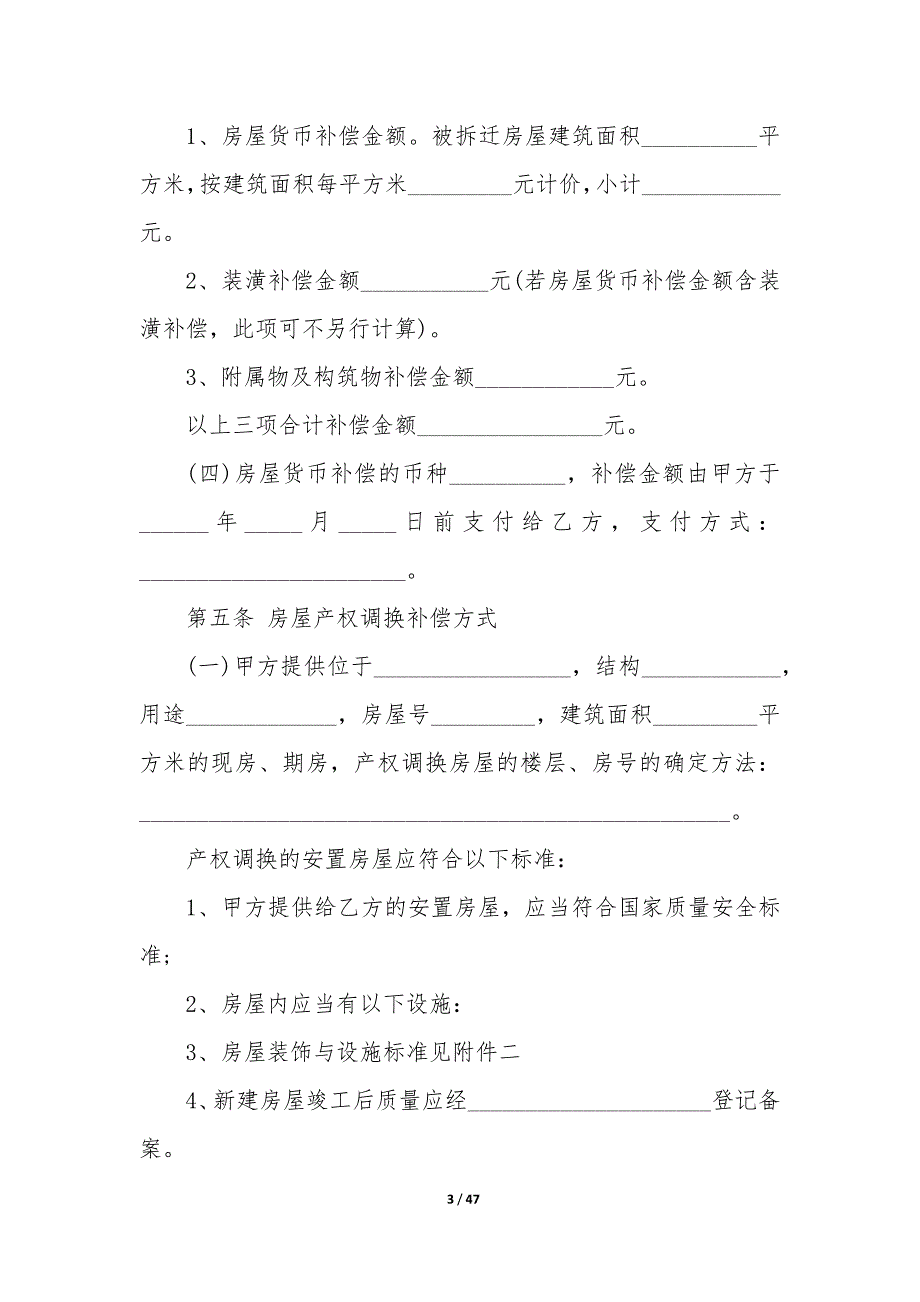 1、房屋货币补偿金额。被拆迁房屋建筑面积__________平
方米,按建筑面积每平方米_________元计价,小计____________
元。
2、装潢补偿金额___________元(若房屋货币补偿金额含装
潢补偿，此项可不另行计算)。
3、附属物及构筑物补偿金额____________元。
以上三项合计补偿金额________________元。
(四)房屋货币补偿的币种__________，补偿金额由甲方于
______年_____月_____日前支付给乙方，支付方式：
_______________________。
第五条 房屋产权调换补偿方式
(一)甲方提供位于_________________，结构____________，
用途_____________，房屋号_________，建筑面积_________平
方米的现房、期房，产权调换房屋的楼层、房号的确定方法：
___________________________________________________。
产权调换的安置房屋应符合以下标准：
1、甲方提供给乙方的安置房屋，应当符合国家质量安全标
准;
2、房屋内应当有以下设施：
3、房屋装饰与设施标准见附件二
4、新建房屋竣工后质量应经_____________________登记备
案。
3 / 47